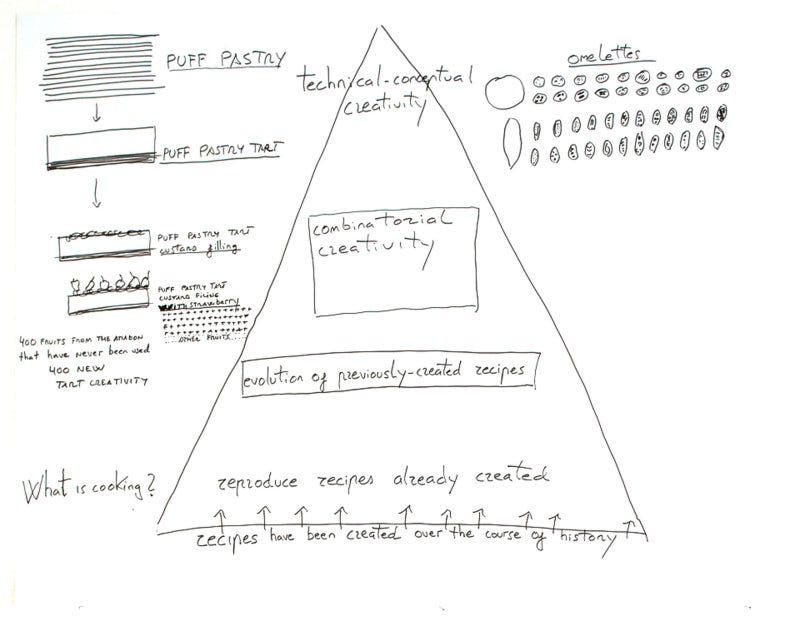 PUFF PASTRY
PUFF PASTRY TART
PUFF PASTRY TART
custard filling
PUFF PASTRY TART
CUSTARD FILING
WITH STRAWBERRY
OTHER FRUITS
400 FRUITS FROM THE AMAZON
that have never been used
400 NEW
TART CREATIVITY
What is cooking?
technical-conceptual
creativity
combinatorial
creativity
evolution of previously-created recipes
reproduce recipes already created
recipes have been created over the course of history
omelettes